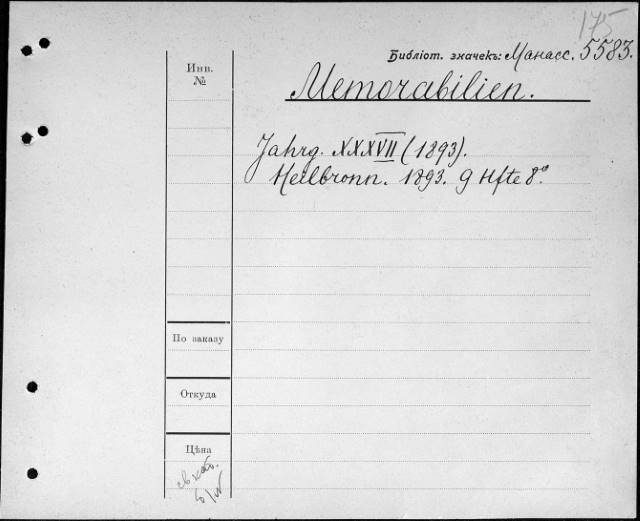 175
Библіот. значекъ: Манасс. 5583.
Инв.
№
Memorabilien.
Jahrg. XXXVII (1893).
Heilbronn. 1893. 9 Hfte 8°.
По заказу
Откуда
Цѣна
св. каб.